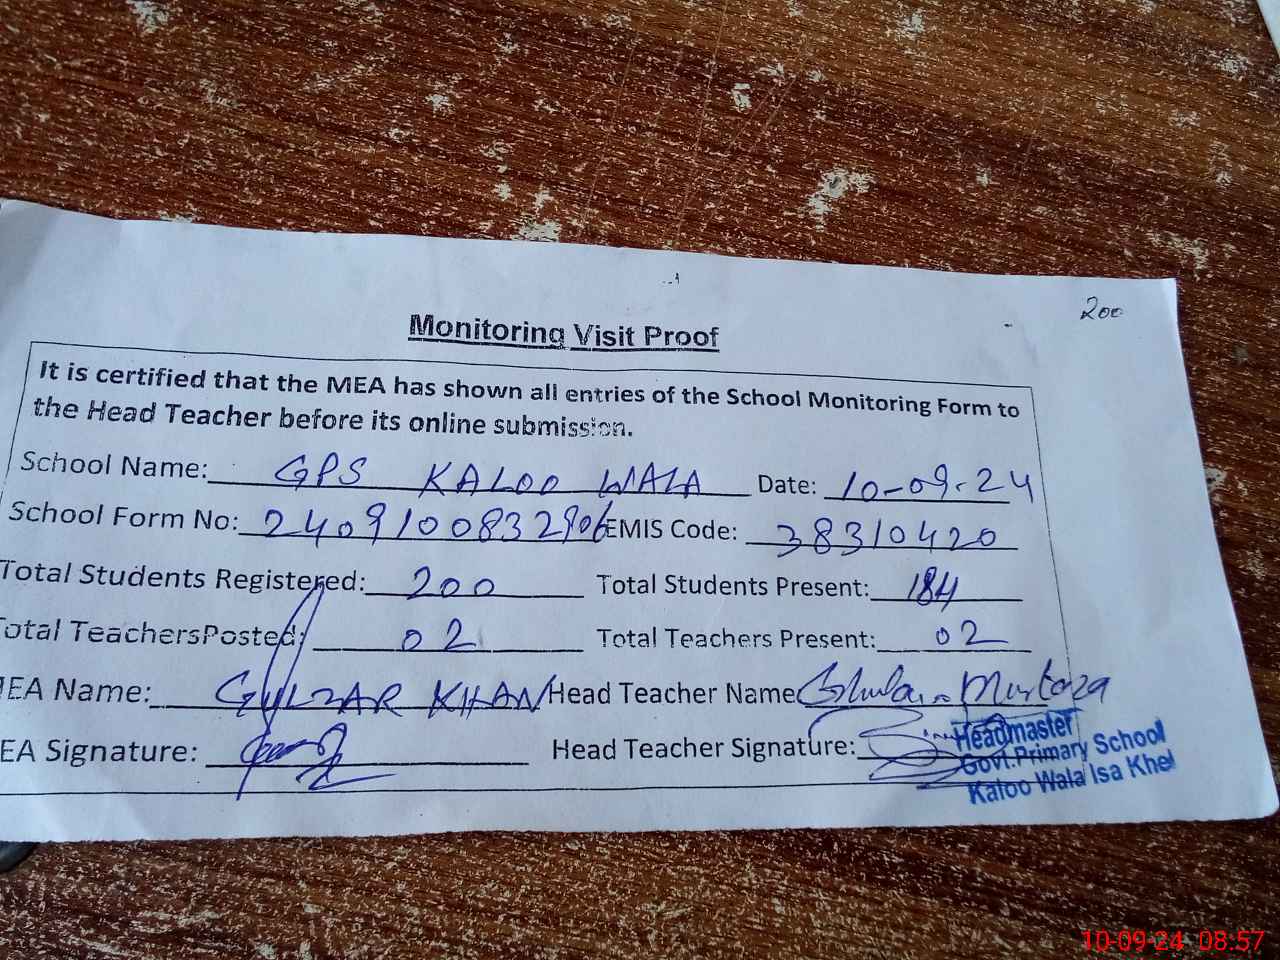 200
Monitoring Visit Proof
It is certified that the MEA has shown all entries of the School Monitoring Form to
the Head Teacher before its online submission.
School Name: GPS KALOO WALA Date: 10-09-24
School Form No: 2409100832906 EMIS Code: 38310420
Total Students Registered: 200 Total Students Present: 184
Total TeachersPosted: 02 Total Teachers Present: 02
MEA Name: GULZAR KHAN Head Teacher Name Ghulam Murtaza
EA Signature: Head Teacher Signature:
Headmaster
Govt.Primary School
Kaloo Wala Isa Khel
10-09-24 08:57